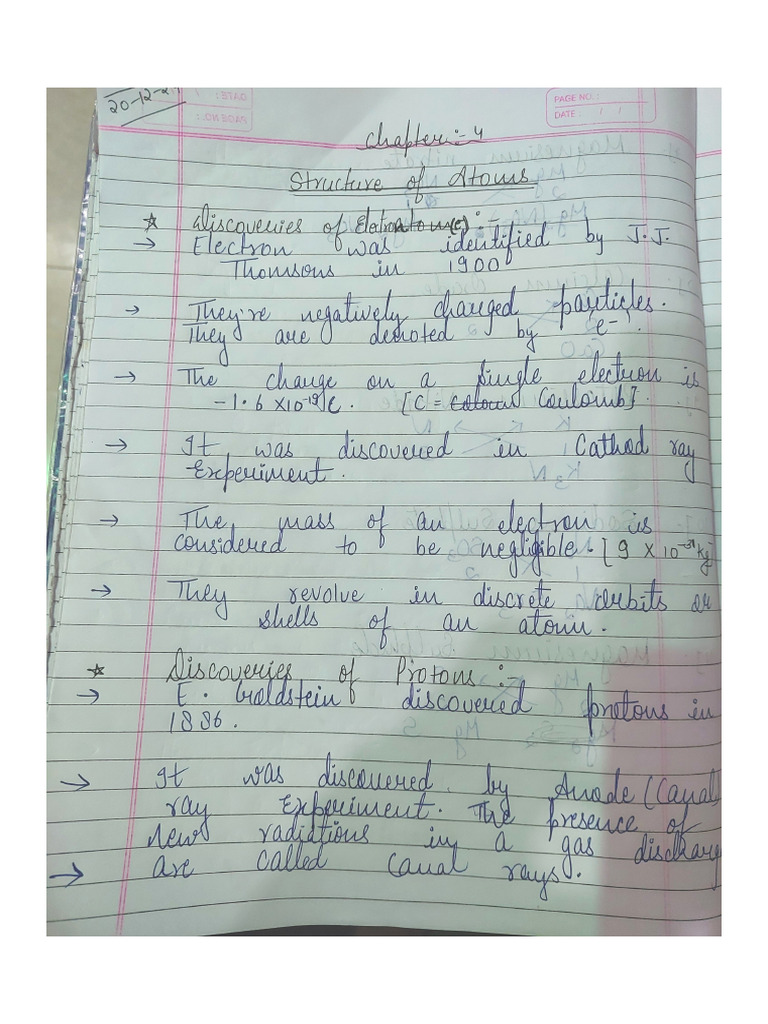 20-12-2
PAGE NO.:
DATE: / /
Chapter :- 4
Structure of Atoms
★ Discoveries of Electron(e) :-
→ Electron was identified by J.J.
Thomsons in 1900
→ They're negatively charged particles.
They are denoted by 'e-'.
→ The charge on a single electron is
-1.6 x10-19 C. [C = Coulomb].
→ It was discovered in Cathod ray
Experiment.
→ The mass of an electron is
considered to be negligible. [9 x 10-31 kg]
→ They revolve in discrete orbits or
shells of an atom.
★ Discoveries of Protons :-
→ E. Goldstein discovered protons in
1886.
→ It was discovered by Anode (Canal)
ray Experiment. The presence of
new radiations in a gas discharge
→ are called Canal rays.